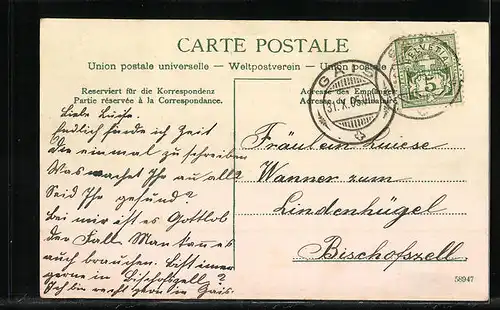 CARTE POSTALE
Union postale universelle — Weltpostverein — Union postale
Reserviert für die Korrespondenz
Partie réservée à la Correspondance.
Adresse des Empfängers
Adresse du destinataire
HELVETIA
5
GAIS
31.X.05
Liebe Luise.
Endlich finde ich Zeit
Dir einmal zu schreiben
Was machet Ihr an all?
Seid Ihr gesund?
Bei mir ist es Gottlob
der Fall. Man kan es
auch brauchen. Bist immer
gerne in Bischofszell?
Ich bin recht gern in Gais.
Fräulein Luiese
Wanner zum
Lindenhügel
Bischofszell
58947